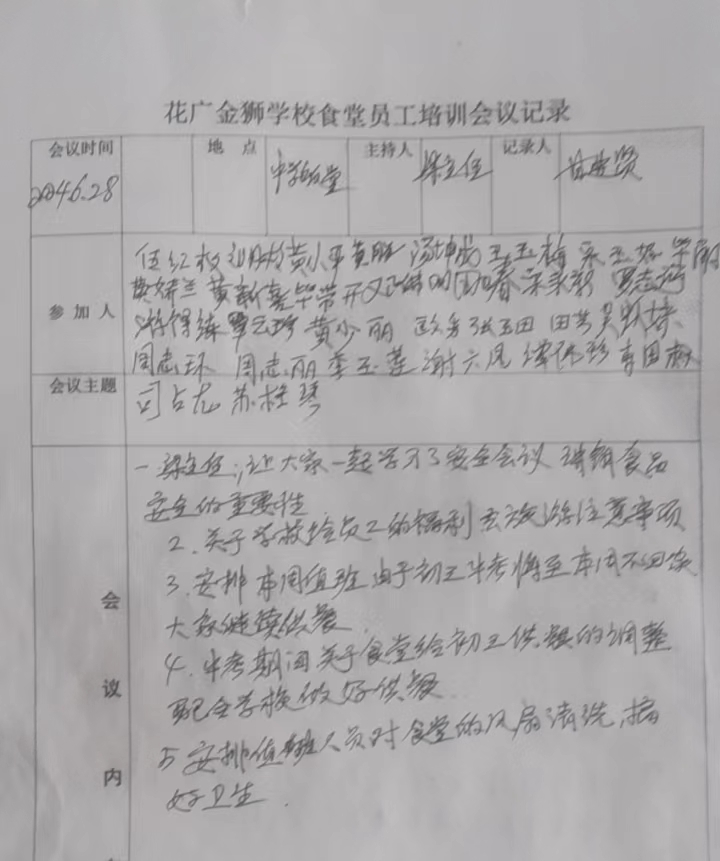 花广金狮学校食堂员工培训会议记录
会议时间 地点 主持人 记录人
2024.6.28 中学饭堂 梁主任 贤
伍红权 黄小平 黄 汤 王玉梅 宋玉
黄 兰 黄新 春 宋 罗志
游得缘 覃云珍 黄少丽 张玉田 田
参加人
周志环 周志丽 李玉莲 谢六凤 谭 珍
会议主题
司占龙 苏桂琴
一 梁主任;让大家一起学习了安全会议 强调食品
安全的重要性
2. 关于学校给员工的福利去旅游注意事项
3. 安排本周值班 由于初三中考将至 本周不回家
大家继续供餐
4. 中考期间关于食堂给初三供餐的调整
配合学校做好供餐
5 安排值班人员对食堂的风扇清洗,搞
好卫生.
会
议
内